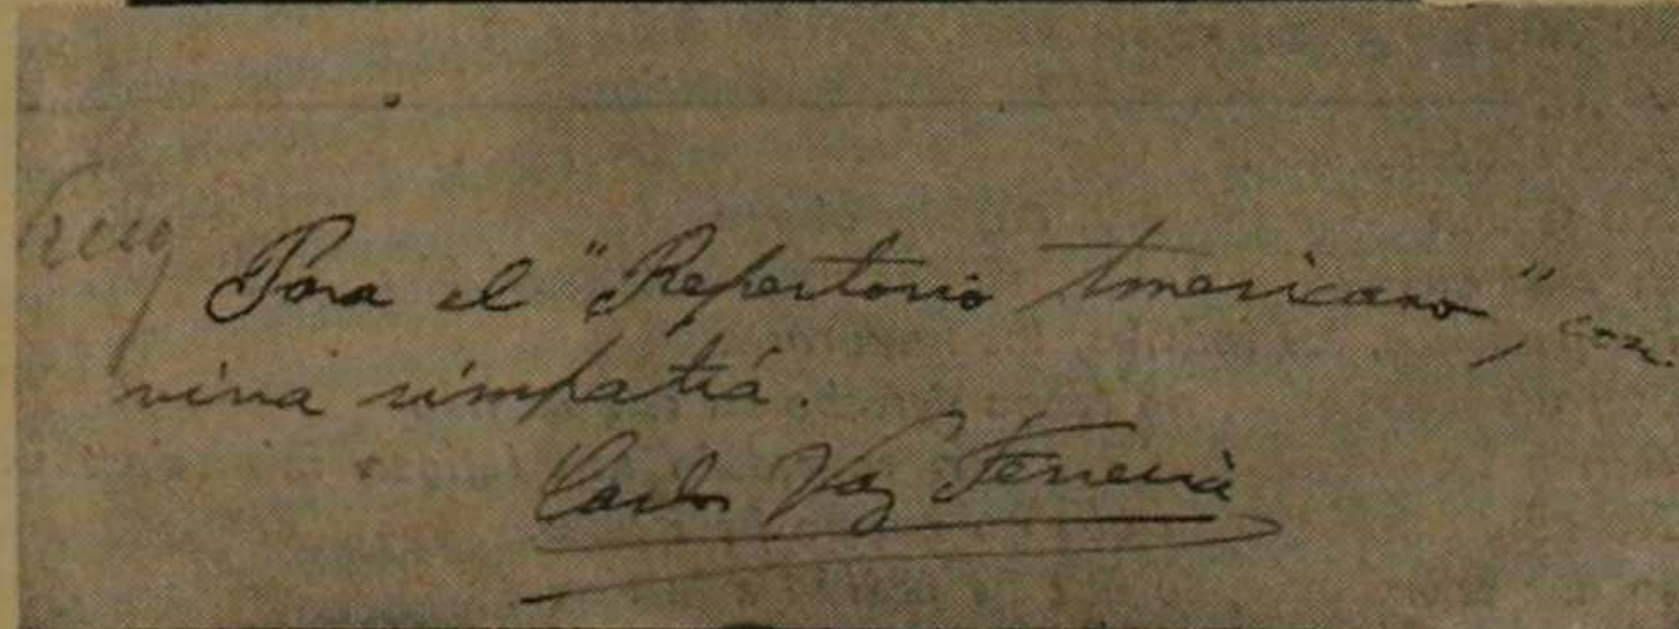 Para el "Repertorio Americano", con
viva simpatía.
Carlos Vaz Ferreira